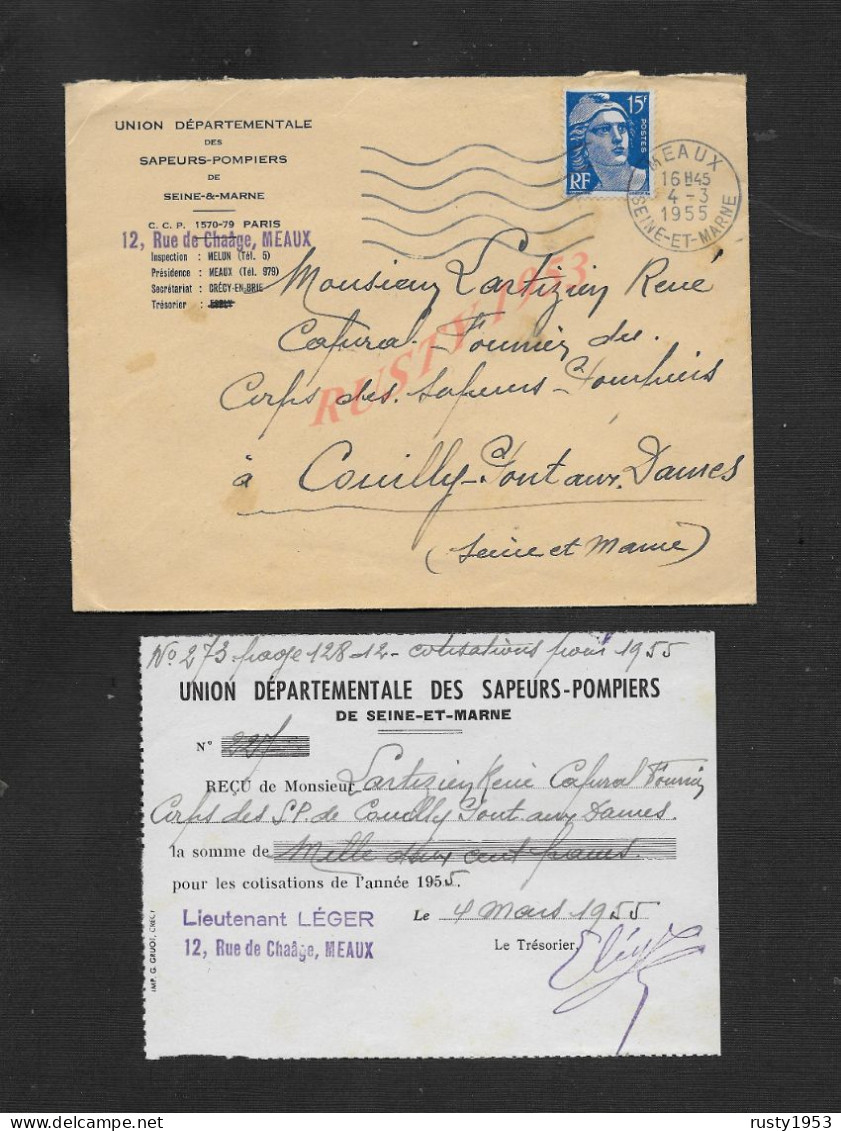 UNION DÉPARTEMENTALE
DES
SAPEURS-POMPIERS
DE
SEINE-&-MARNE
C. C. P. 1570-79 PARIS
12, Rue de Chaâge, MEAUX
Inspection : MELUN (Tél. 5)
Présidence : MEAUX (Tél. 979)
Secrétariat : CRÉCY-EN-BRIE
Trésorier :
15F
POSTES
RF
MEAUX
16H45
4-3
1955
SEINE-ET-MARNE
Monsieur Lartizien René
Caporal-Fourrier du
Corps des Sapeurs-Pompiers
à Couilly-Pont aux Dames
(Seine et Marne)
RUSTY 1953
No 273 page 128-12- cotisations pour 1955
UNION DÉPARTEMENTALE DES SAPEURS-POMPIERS
DE SEINE-ET-MARNE
N° 227
REÇU de Monsieur Lartizien René Caporal Fourrier
Corps des S.P. de Couilly Pont aux Dames.
la somme de Mille deux cent francs.
pour les cotisations de l'année 1955.
Lieutenant LÉGER
12, Rue de Chaâge, MEAUX
Le 4 Mars 1955
Le Trésorier,
IMP. G. GRUOT, CRÉCY
rusty1953